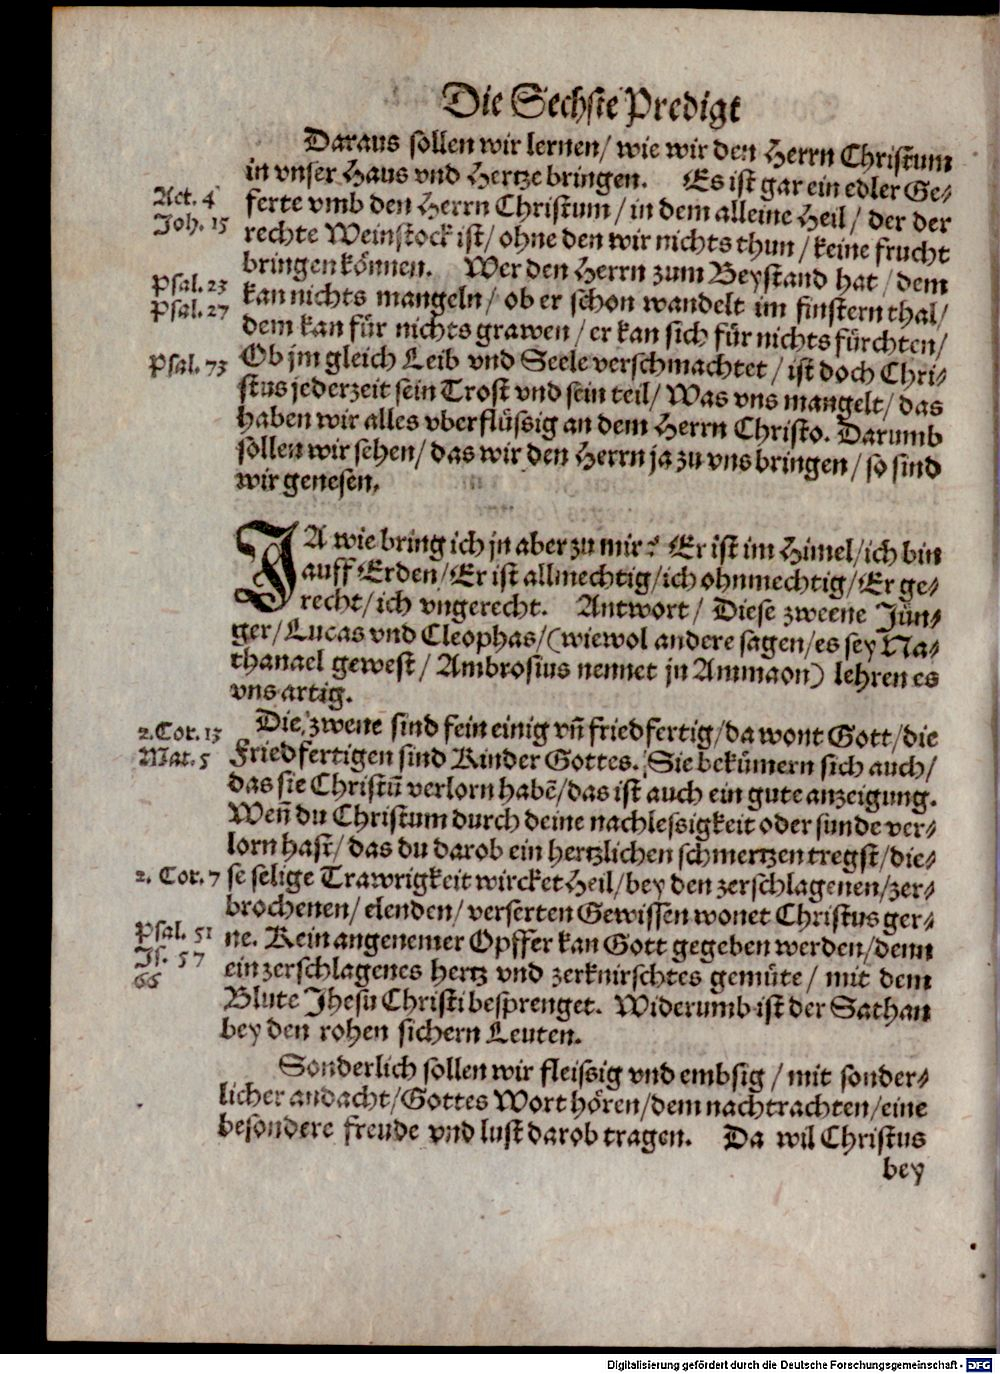 Die Sechste Predigt
Daraus sollen wir lernen/ wie wir den Herrn Christum
in vnser Haus vnd Hertze bringen. Es ist gar ein edler Ge-
Act. 4
ferte vmb den Herrn Christum/ in dem alleine Heil/ der der
Joh. 15
rechte Weinstock ist/ ohne den wir nichts thun/ keine frucht
bringen können. Wer den Herrn zum Beystand hat/ dem
Psal. 23
kan nichts mangeln/ ob er schon wandelt im finstern thal/
Psal. 27
dem kan für nichts grawen/ er kan sich für nichts fürchten/
Psal. 73
Ob jm gleich Leib vnd Seele verschmachtet/ ist doch Chri-
stus jederzeit sein Trost vnd sein teil/ Was vns mangelt/ das
haben wir alles vberflüssig an dem Herrn Christo. Darumb
sollen wir sehen/ das wir den Herrn ja zu vns bringen/ so sind
wir genesen.
JA wie bring ich jn aber zu mir? Er ist im Himel/ ich bin
auff Erden/ Er ist allmechtig/ ich ohnmechtig/ Er ge-
recht/ ich vngerecht. Antwort/ Diese zweene Jün-
ger/ Lucas vnd Cleophas/ (wiewol andere sagen/ es sey Na-
thanael gewest/ Ambrosius nennet jn Ammaon) lehren es
vns artig.
Die zwene sind fein einig vñ friedfertig/ da wont Gott/ die
2. Cor. 13
Friedfertigen sind Kinder Gottes. Sie bekümern sich auch/
Mat. 5
das sie Christũ verlorn habẽ/ das ist auch ein gute anzeigung.
Weñ du Christum durch deine nachlessigkeit oder sunde ver-
lorn hast/ das du darob ein hertzlichen schmertzen tregst/ die-
2. Cor. 7
se selige Trawrigkeit wircket Heil/ bey den zerschlagenen/ zer-
brochenen/ elenden/ verserten Gewissen wonet Christus ger-
Psal. 51
ne. Kein angenemer Opffer kan Gott gegeben werden/ denn
Js. 57
ein zerschlagenes hertz vnd zerknirschtes gemüte/ mit dem
66
Blute Jhesu Christi besprenget. Widerumb ist der Sathan
bey den rohen sichern Leuten.
Sonderlich sollen wir fleissig vnd embsig/ mit sonder-
licher andacht/ Gottes Wort hören/ dem nachtrachten/ eine
besondere freude vnd lust darob tragen. Da wil Christus
bey
Digitalisierung gefördert durch die Deutsche Forschungsgemeinschaft - DFG